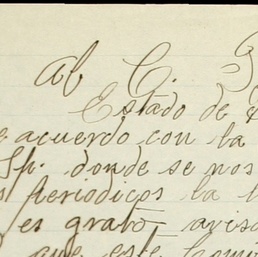 Al C.
Estado de
acuerdo con la
Sp. donde se nos
periodicos la
es grato avisa
que este Comi